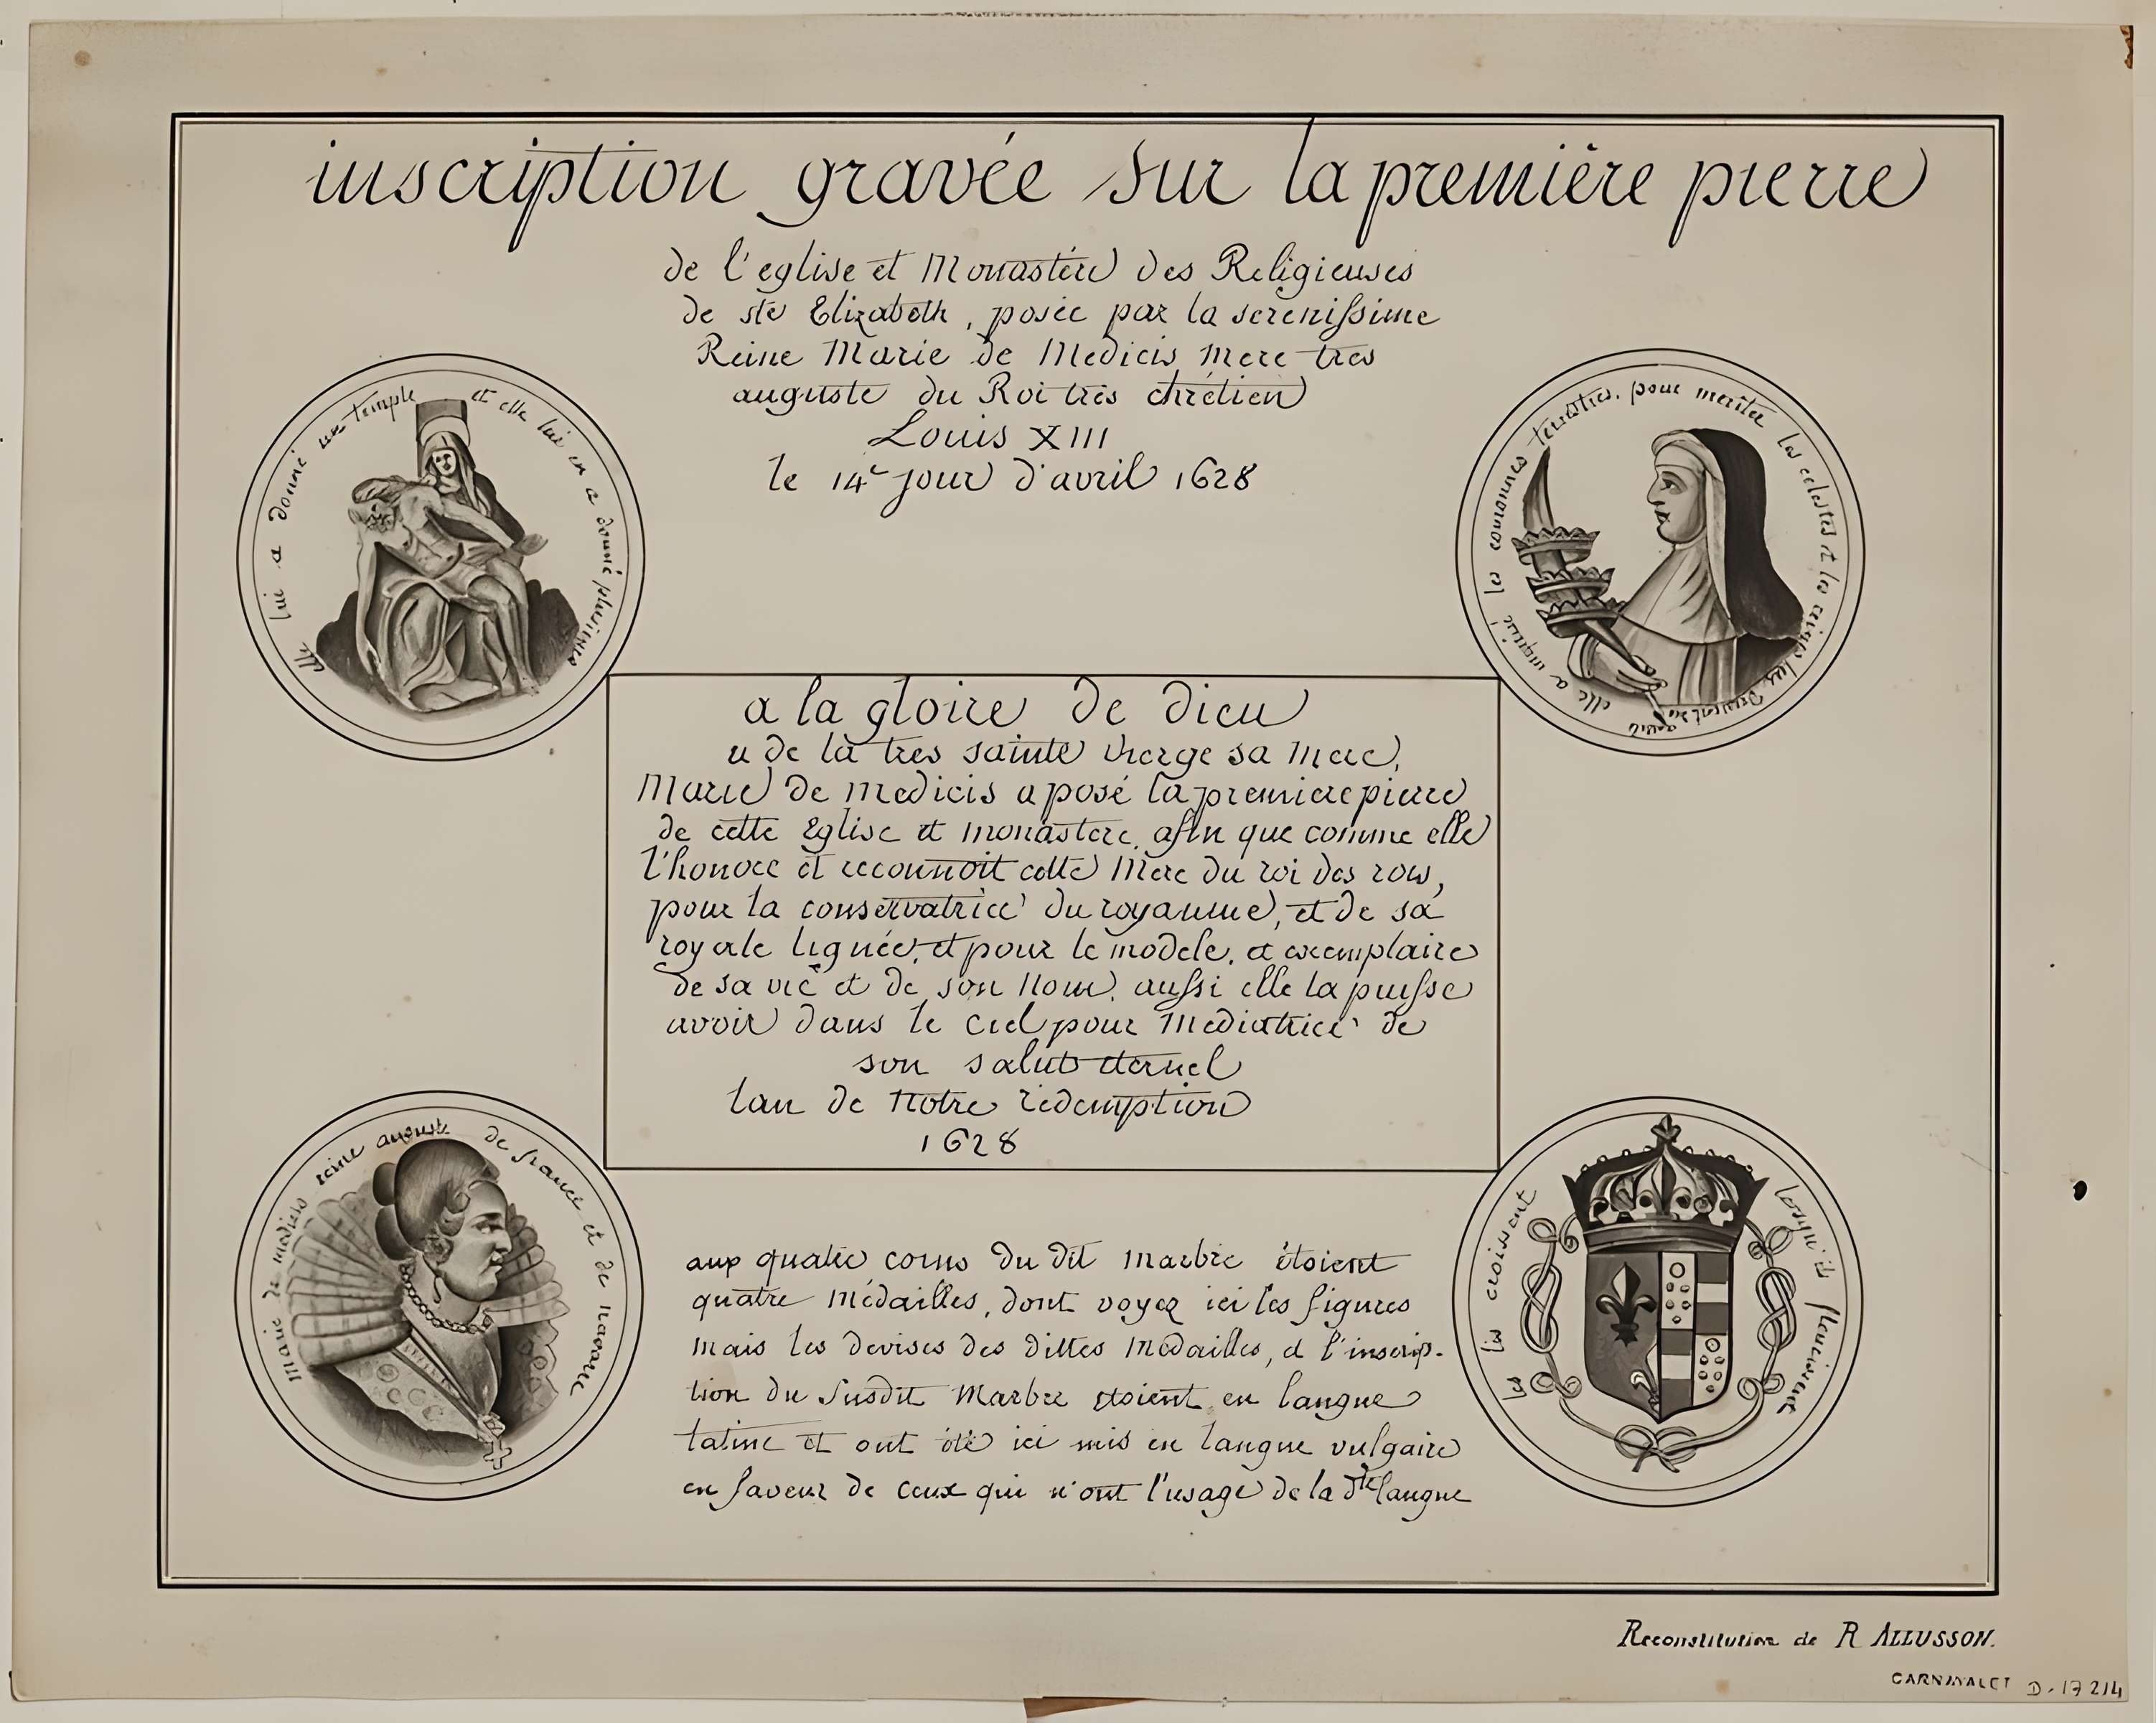 inscription gravée sur la première pierre
de l'eglise et Monastère des Religieuses
de ste Elizabeth, posée par la serenissime
Reine Marie de Medicis mere tres
auguste du Roi très chrétien
Louis XIII
le 14e jour d'avril 1628
elle lui a donné un temple et elle lui en a donné plusieurs
elle a méprisé les couronnes terrestres, pour meriter les celestes et les
a la gloire de dieu
et de la tres sainte vierge sa mere,
Marie de medicis a posé la premiere pierre
de cette Eglise et monastere, afin que comme elle
l'honore et reconnoit cette Mere du roi des rois,
pour la conservatrice du royaume, et de sa
royale lignée, et pour le modele, et exemplaire
de sa vie et de son Nom, aussi elle la puisse
avoir dans le Ciel pour Mediatrice de
son salut eternel
lan de Notre redemption
1628
Marie de medicis reine auguste de france et de Navarre
les lis croissent lorsqu'ils fleurissent
aux quatre coins du dit marbre étoient
quatre médailles, dont voyez ici les figures
mais les devises des dittes médailles, et l'inscrip-
tion du susdit Marbre etoient en langue
latine et ont été ici mis en langue vulgaire
en faveur de ceux qui n'ont l'usage de la dte langue
Reconstitution de R ALLUSSON.
CARNAVALET D.17214